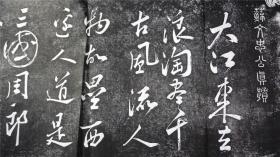 蘇文忠公眞蹟
大江東去
浪淘盡千
古風流人
物故壘西
邊人道是
三國周郎